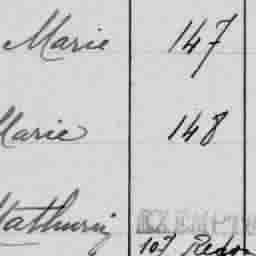 Marie 147
Marie 148
Mathurin
107 Redon